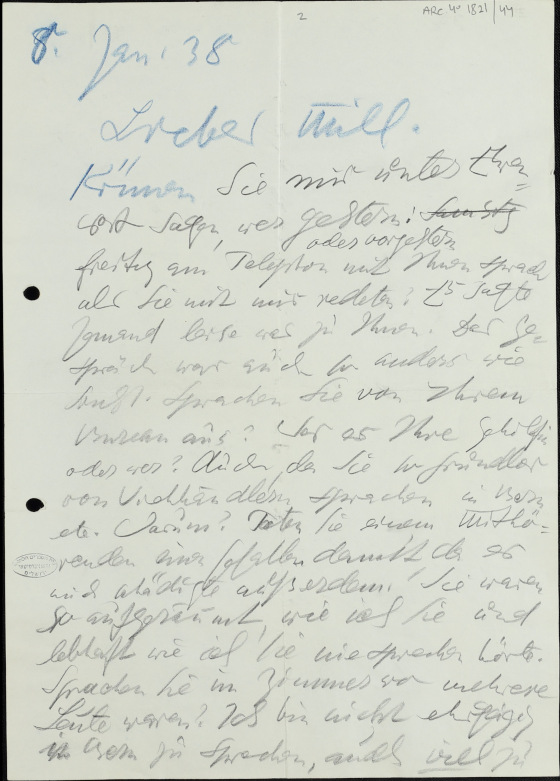 2
ARC 4o 1821/44
8. Jan. 38
Lieber Mill.
Können Sie mir unter Ehren=
wort sagen, wer gestern: Samstg
oder vorgestern
freitg am Telephon mit Ihnen sprach
als Sie mit mir redeten? Es sagte
Jemand leise was zu Ihnen. Das Ge=
spräch war auch so anders wie
sonst. Sprachen Sie von Ihrem
Bureau aus? War es Ihre Gehilfin
oder wer? Auch, da Sie so
von Viehhändlern sprachen in Bern
etc. Warum? Taten Sie einem Mithö=
renden einen Gefallen damit, da er
mich außerdem! Sie waren
so aufgeräumt, wie ich Sie und
lebhaft wie ich Sie nie sprechen hörte.
Sprachen Sie im Zimmer wo mehrere
Leute waren? Ich bin nicht ehrgeizig
in Bern zu sprechen, auch viel zu